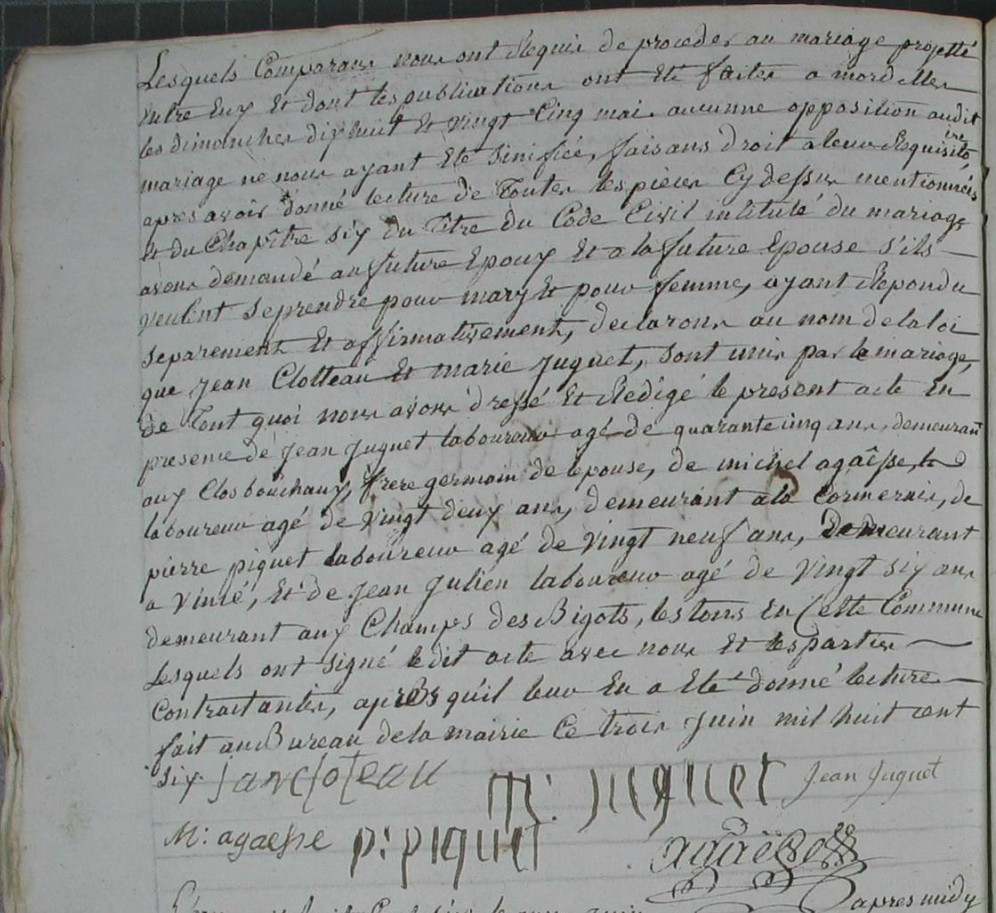 Lesquels Comparans nous ont Requis de proceder au mariage projetté
entre Eux Et dont les publications ont Eté faites a mordelles
les dimanches dix huit Et vingt Cinq mai. aucunne opposition audit
mariage ne nous ayant Eté Sinifiée, faisans droit a leur Requisitoire,
apres avoir donné lecture de Toutes les pièces Cy dessus mentionnées
Et du Chapître six du Titre du Code Civil intitulé du mariage
avons demandé au futture Epoux Et a la future Epouse s'ils
veulent se prendre pour mary Et pour femme, ayant Repondu
Separement Et affirmativement, declarons au nom de la loi
que Jean Clotteau Et marie Juguet, Sont unis par le mariage,
de Tout quoi nous avons dressé Et Redigé le present acte En
presence de Jean Juguet laboureur agé de quarante cinq ans, demeurant
aux Clos bouchaux, frere germain de lepouse, de michel agaësse,
laboureur agé de vingt deux ans, demeurant a la Cormerais, de
pierre piquet laboureur agé de vingt neuf ans, demeurant
a Vincé, Et de Jean Julien laboureur agé de vingt six ans
demeurant aux Champs des Bigots, les tous En Cette Commune
Lesquels ont Signé le dit acte avec nous Et les parties
Contractantes, après qu'il leur En a Eté donné lecture
fait au Bureau de la mairie Ce trois Juin mil huit cent
six. Jan cloteau m: juguet Jean Juguet
M: agaesse p: piquet agaësse
apres midy